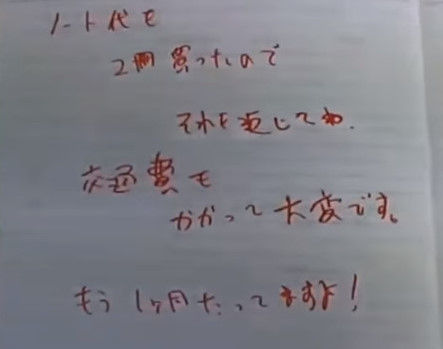 ノート代も
2冊買ったので
それも返してね.
交通費も
かかって大変です。
もう1ヶ月たってますよ!